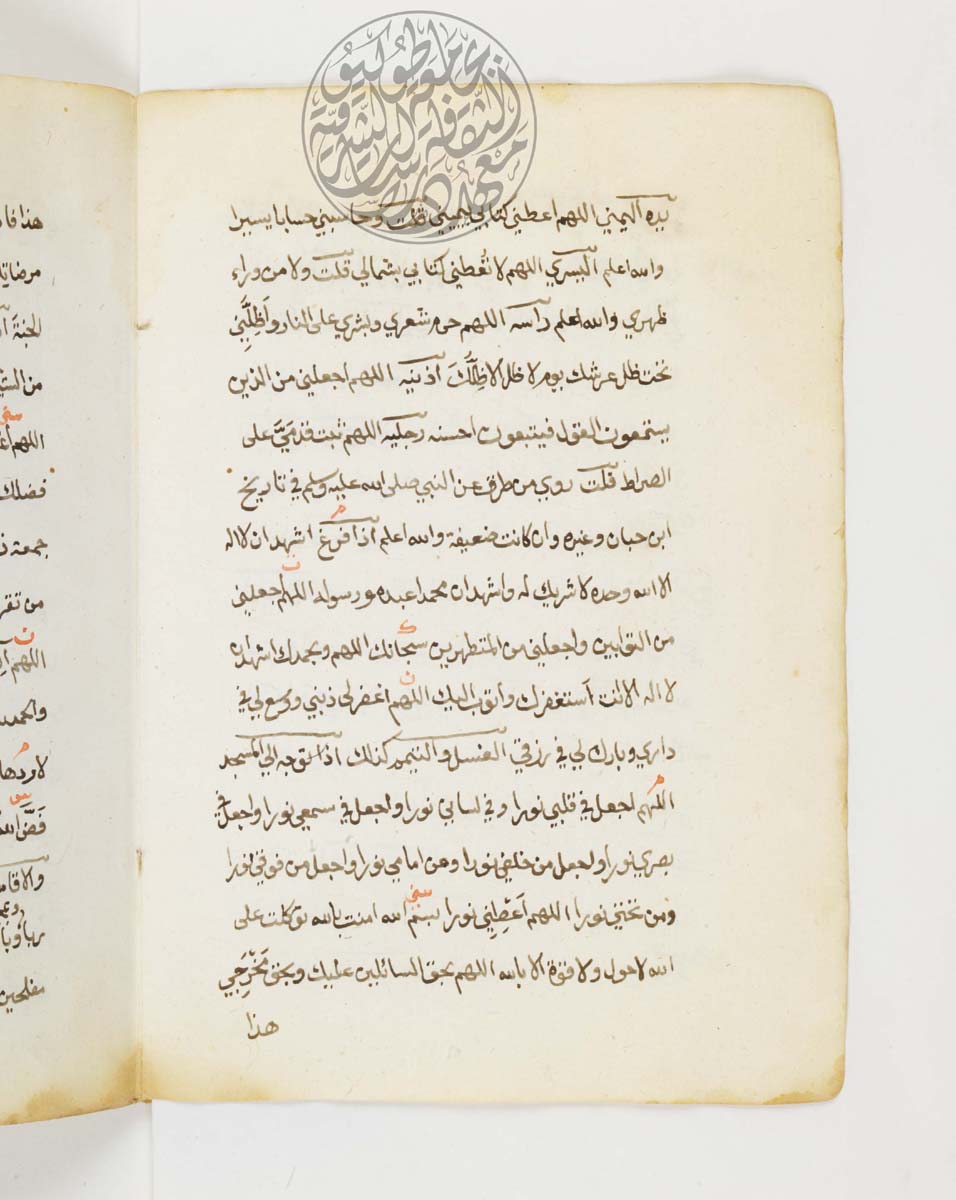 يده اليمني اللهم اعطني كتابي بيميني قلت وحاسبني حسابا يسيرا
والله اعلم اليسري اللهم لا تُعْطني كتابي بشمالي قلت ولا من وراء
ظهري والله اعلم رأسه اللهم حرم شعري وبشري علي النار وأَظِلَّنِي
تحت ظل عرشك يوم لا ظل الا ظِلُّكَ أذنيه اللهم اجعلني من الذين
يستمعون القول فيتبعون احسنه رجليه اللهم ثبت قدمَيَّ على
الصراط قلت روي من طرق عن النبي صلى الله عليه وسلم في تاريخ
ابن حبان وغيره وان كانت ضعيفة والله اعلم اذا فرغ اشهد ان لا اله
الا الله وحده لا شريك له واشهد ان محمدا عبده ورسوله اللهم اجعلني
من التوابين واجعلني من المتطهرين سبحانك اللهم وبحمدك اشهد ان
لا اله الا انت أستغفرك وأتوب اليك اللهم اغفر لي ذنبي ووسع لي في
داري وبارك لي في رزقي الغسل والتيمم كذلك اذا توجه الي المسجد
اللهم اجعل في قلبي نورا وفي لساني نورا واجعل في سمعي نورا واجعل في
بصري نورا واجعل من خلفي نورا ومن امامي نورا واجعل من فوقي نورا
ومن تحتي نورا اللهم أَعْطِني نورا بسم الله امنت بالله توكلت على
الله لا حول ولا قوة الا بالله اللهم بحق السائلين عليك وبحق مَخْرَجِي
هذا
مرضاتك
الجنة
اللهم
فضلك
جمعة
اللهم
مفلحين